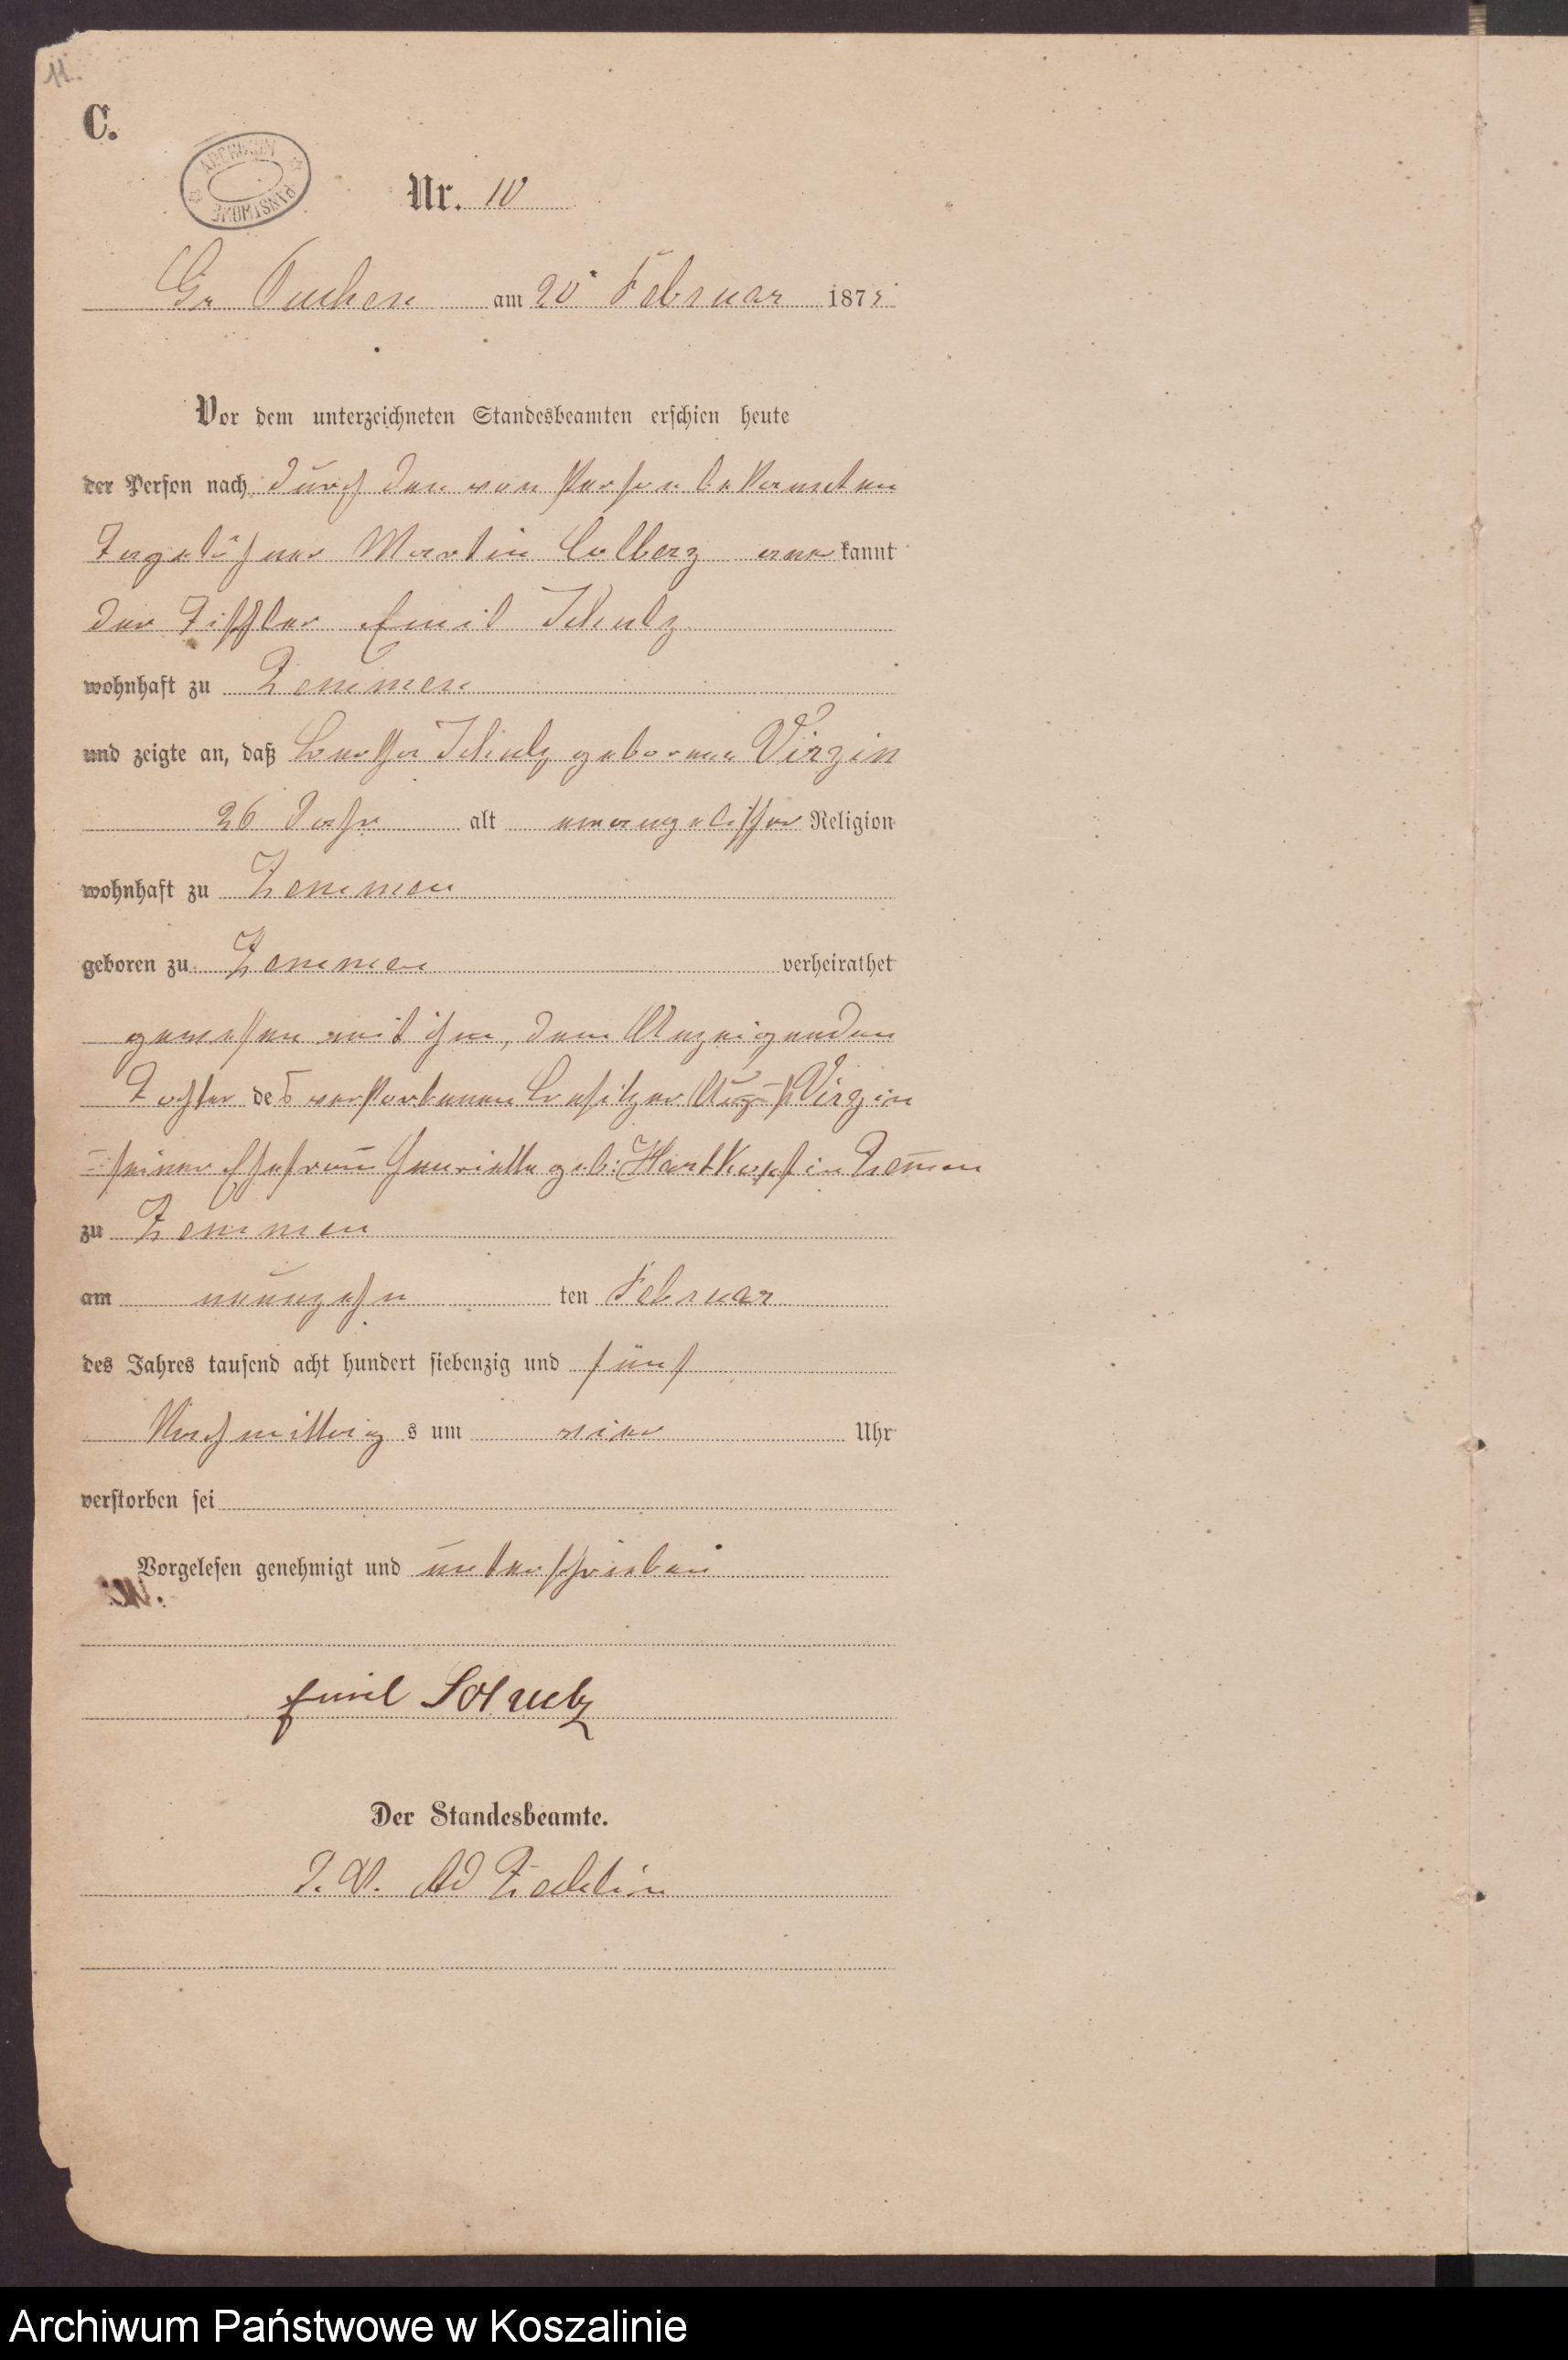 11.
C.
ARCHIWUM PAŃSTWOWE
Nr. 10
Gr Tuchen am 20 Februar 1875
Vor dem unterzeichneten Standesbeamten erschien heute
der Person nach durch den von Person bekannten
Tagelöhner Martin Colberg aner kannt
der Tischler Emil Schulz
wohnhaft zu Zemmen
und zeigte an, daß Bertha Schulz geborene Virgin
26 Jahr alt evangelischer Religion
wohnhaft zu Zemmen
geboren zu Zemmen verheirathet
gewesen mit ihm, dem Anzeigenden
Tochter des verstorbenen Besitzer August Virgin
seiner Ehefrau Henriette geb: Hartkopf in Zem̄en
zu Zemmen
am neunzehn ten Februar
des Jahres tausend acht hundert siebenzig und fünf
Nachmittag s um vier Uhr
verstorben sei
Vorgelesen genehmigt und unterschrieben
Emil Schulz
Der Standesbeamte.
I. V. Ad
Archiwum Państwowe w Koszalinie